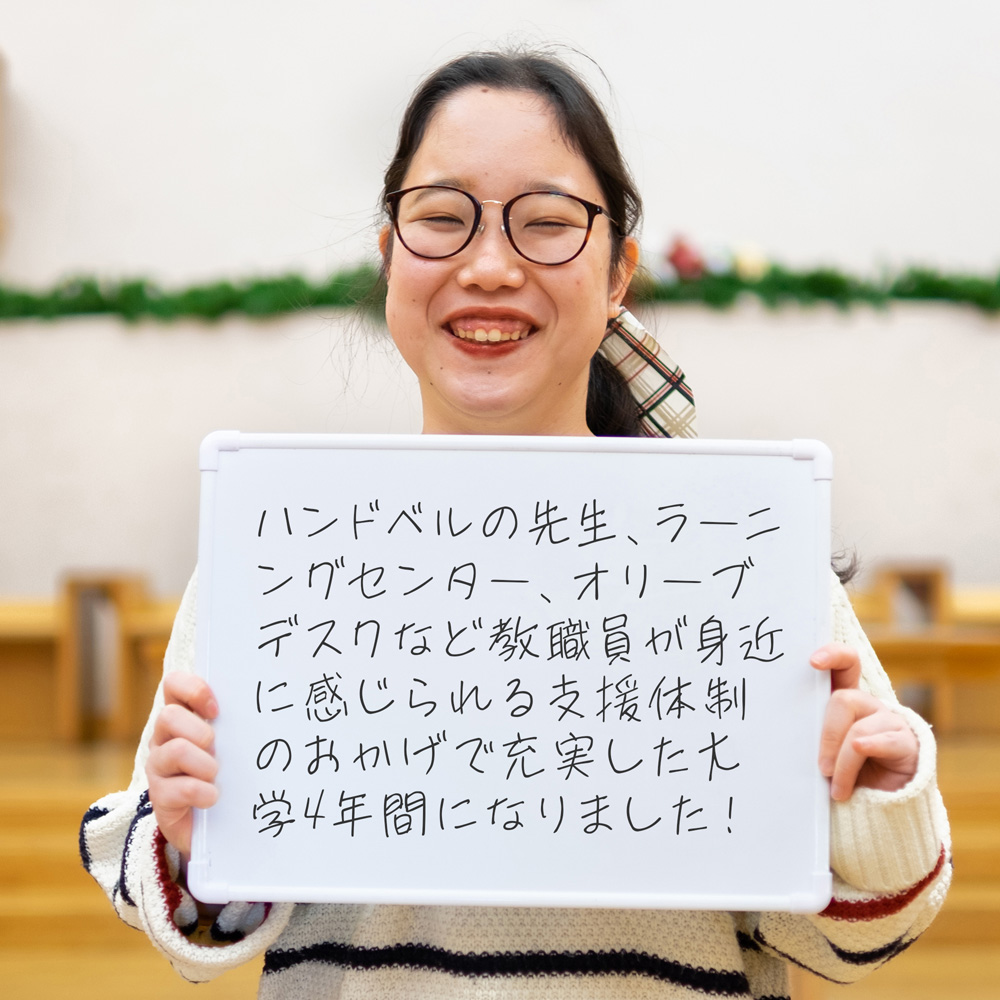 ハンドベルの先生、ラーニ
ングセンター、オリーブ
デスクなど教職員が身近
に感じられる支援体制
のおかげで充実した大
学4年間になりました！